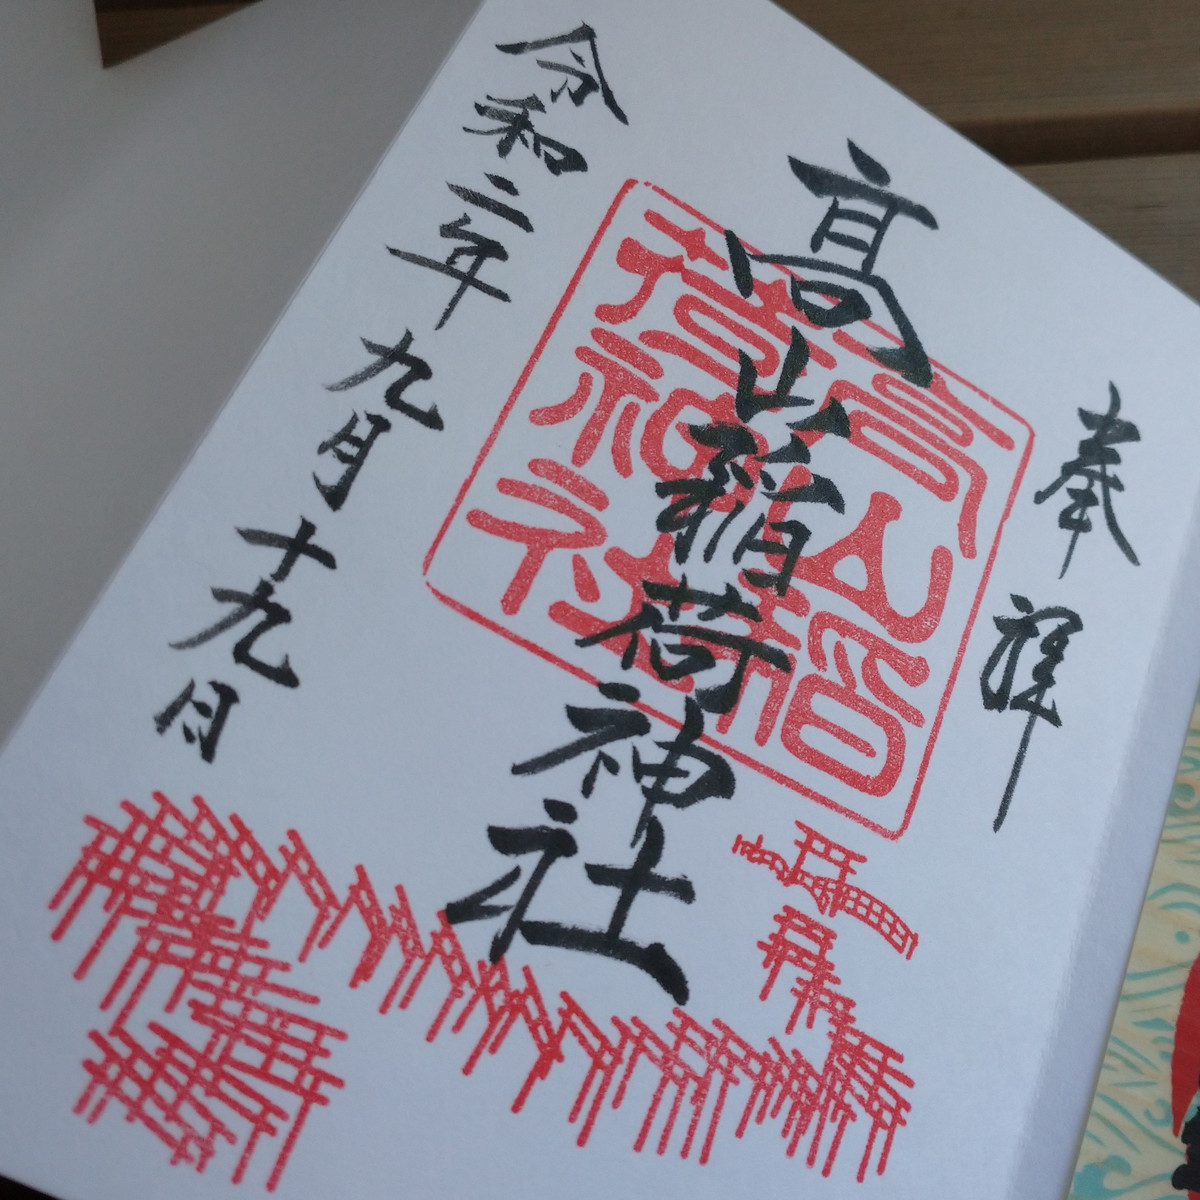 奉拝
高山稲荷神社
高山稲荷神社
令和二年九月十九日